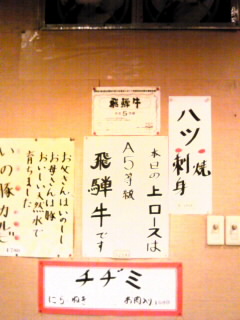 飛騨牛
ハツ焼
刺身
本日の上ロースは
A5等級
飛騨牛です
お父さんはいのしし
お母さんは豚
おいしい天然水で
育ちました
いの豚カルビ
チヂミ
にら ねぎ お肉入り